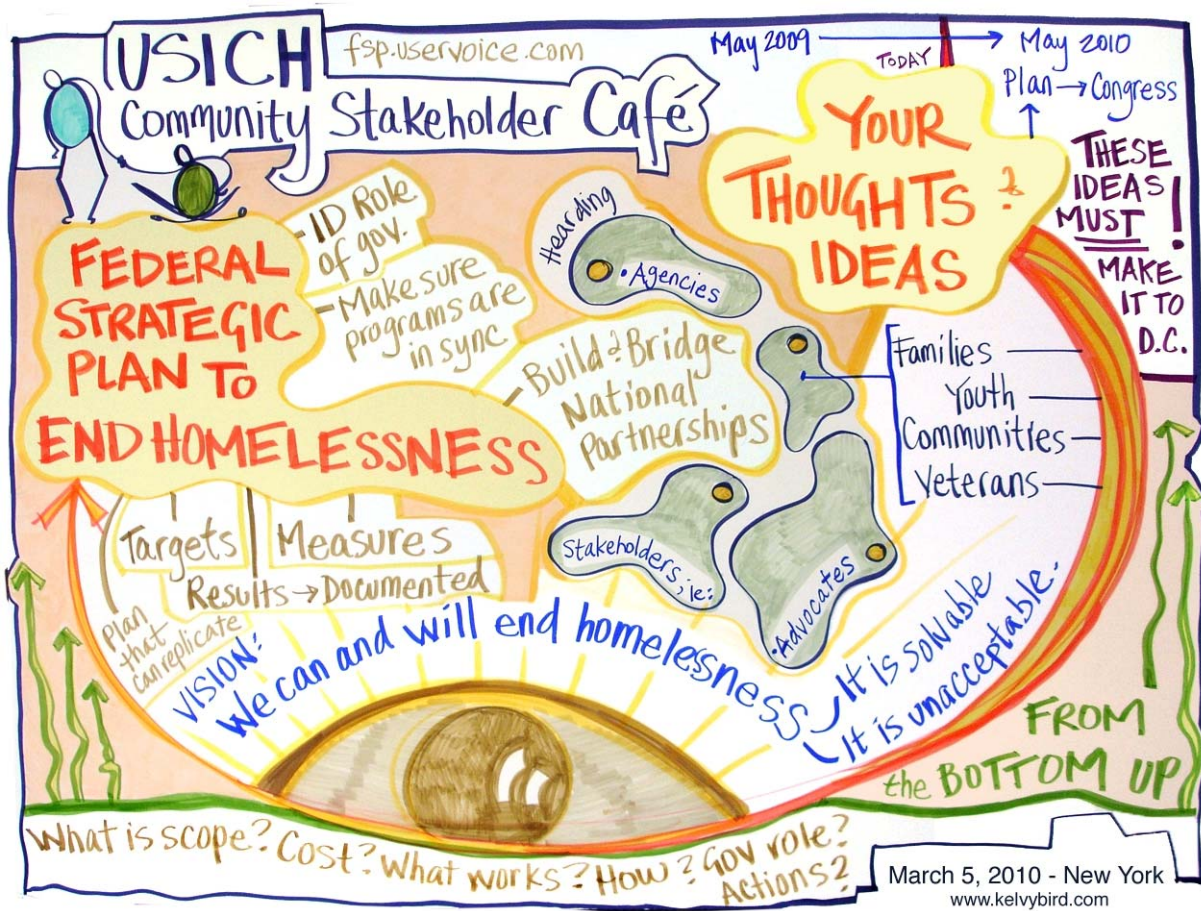 USICH
fsp.uservoice.com
Community Stakeholder Café
May 2009 → May 2010
TODAY
Plan → Congress
THESE
IDEAS
MUST
MAKE
IT TO
D.C.
!
YOUR
THOUGHTS &
IDEAS
FEDERAL
STRATEGIC
PLAN TO
END HOMELESSNESS
- ID Role
of gov.
- Make sure
programs are
in sync
- Build & Bridge
National
Partnerships
Hearding
• Agencies
Families
Youth
Communities
Veterans
Stakeholders, ie:
• Advocates
Targets
Measures
Results → Documented
plan
that
can replicate
VISION:
We can and will end homelessness
It is solvable
It is unacceptable.
FROM
the BOTTOM UP
What is scope? Cost? What works? How? Gov role?
Actions?
March 5, 2010 - New York
www.kelvybird.com